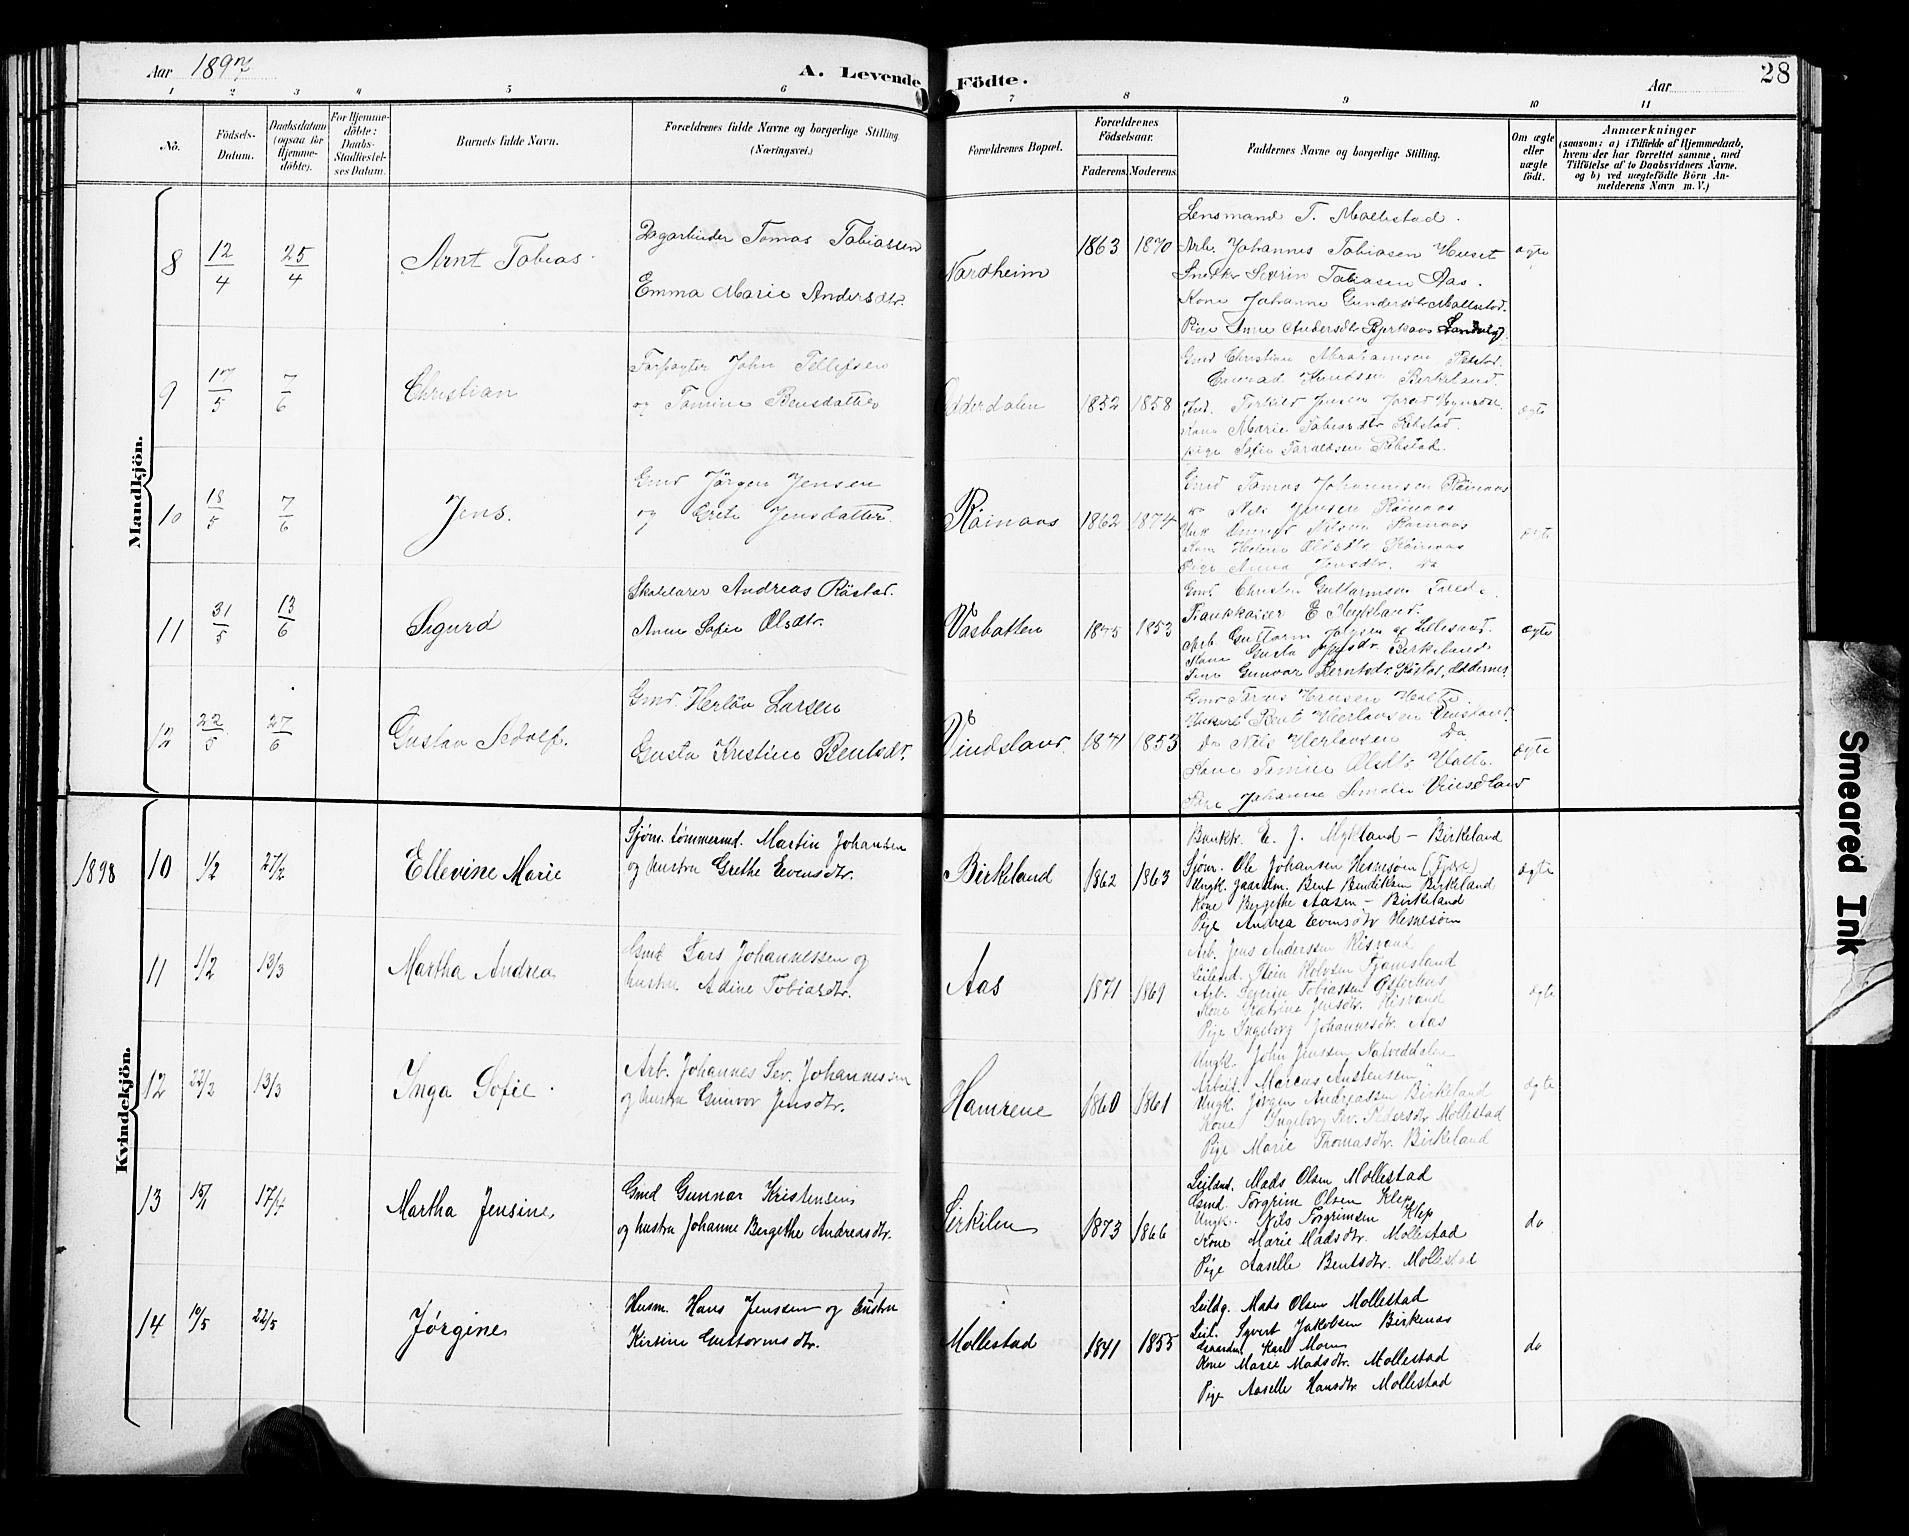 Aar 1897
A. Levende Födte.
Aar
28
1 2 3 4 5 6 7 8 9 10 11
No.
Födsels-Datum.
Daabsdatum (ogsaa for Hjemme-döbte).
For Hjemme-döbte: Daabs-Stadfæstel-ses Datum.
Barnets fulde Navn.
Forældrenes fulde Navne og borgerlige Stilling.
(Næringsvei.)
Forældrenes Bopæl.
Forældrenes Födselsaar.
Faderens. Moderens.
Faddernes Navne og borgerlige Stilling.
Om ægte eller uægte födt.
Anmærkninger
(saasom: a) i Tilfælde af Hjemmedaab,
hvem der har forrettet samme, med
Tilföielse af to Daabsvidners Navne,
og b) ved uægtefödte Börn An-
melderens Navn m. V.)
Mandkjön.
8 12/4 25/4 Arnt Tobias
Dagarbeider Tomas Tobiassen
Emma Marie Andersdtr.
Nordheim 1863 1870
Lensmand T. Mollestad.
Arb. Johannes Tobiasen Huset
Snekker Severin Tobiasen Aas.
Kone Johanne Gundersdtr Mollestad.
Pige Anne Andersdtr Bjerkaas
ægte
9 17/5 7/6 Christian
Forpagter John Tellefsen
og Tomine Bensdatter
1852 1858
Gmd Christian Abrahamsen Rebstad
Conrad Knudsen Birkeland.
Terkild Jensen
Kone Marie Tobiasdtr Rebstad.
pige Sofie Taraldsen Rebstad.
ægte
10 18/5 7/6 Jens.
Gmd Jørgen Jensen
og Grete Jensdatter.
Röinaas 1862 1874
Gmd Tomas Johannesen Röinaas
do Nils Jensen Röinaas
Nilsen Röinaas
Kone Helene Olsdtr. Röinaas
Pige Anna Jensdtr. do
ægte
11 31/5 13/6 Sigurd
Skolelærer Andreas Röstad.
Anne Sofie Olsdtr.
Vasbotten 1875 1853
Gmd Christen Guttormsen
E Mykland.
Arb Guttorm
Kone Gusta Birkeland
Gunvor Berntsdtr. Röstad, Oddernes
ægte
12 22/5 27/6 Gustav Adolf.
Gmd. Herlov Larsen
Gusta Kristine Bentsdtr.
Vindsland. 1871 1853
Gmd Hansen Holte.
Bent Herlovsen Vinsland.
Do Nils Herlovsen Do
Kone Tomine Olsdtr Holte.
Pige Johanne Amalie Vinsdland
ægte
Kvindekjön.
1898 10 1/2 27/2 Ellevine Marie
Sjøm. tømmermd. Martin Johansen
og hustru Grethe Evensdtr.
Birkeland 1862 1863
Bankk. E. J. Mykland – Birkeland
Sjøm. Ole Johansen Hesnesøen (Fjære)
Ungk. gaardm. Bent Bendiksen Birkeland
Kone Bergethe Aasen – Birkeland
Pige Andrea Evensdtr Hesnesøen
ægte
11 4/2 13/3 Martha Andrea
Gmd Lars Johannessen og
hustru Adine Tobiasdtr.
Aas 1871 1869
Arb. Jens Anderssen Risvand
Leilend. Stein Holvsen Tjomsland
Arb. Severin Tobiassen Osterhus
Kone Katrine Jensdtr. Risvand
Pige Ingeborg Johannesdtr. Aas
ægte
12 22/2 13/3 Inga Sofie
Arb. Johannes Sev. Johannessen
og hustru Gunvor Jensdtr.
Hamrene 1860 1861
Ungk. John Jenssen Natveddalen
Arbeid. Marcus Austensen "
Ungk. Jørgen Andreassen Birkeland
Kone Ingeborg Sev. Pedersdtr Mollestad
Pige Marie Thomasdtr. Birkeland
ægte
13 17/4 Martha Jensine
Gmd Gunnar Kristensen
og hustru Johanne Bergethe Andreasdtr.
1873 1866
Leilænd. Mads Olsen Mollestad
Gmd. Torgrim Olsen Klep
Ungk. Nils Torgrimsen Klep
Kone Marie Madsdtr. Mollestad
Pige Aaselle Bentsdtr. Mollestad
do
14 10/5 22/5 Jørgine
Husm. Hans Jenssen og hustru
Kirstine Guttormsdtr.
Mollestad 1841 1855
Leildg. Mads Olsen Mollestad
Leil. Syvert Jakobsen Birkenæs
Gaardm. Karl Moen
Kone Marie Madsdtr. Mollestad
Pige Aaselle Hansdtr. Mollestad
do
Smeared Ink